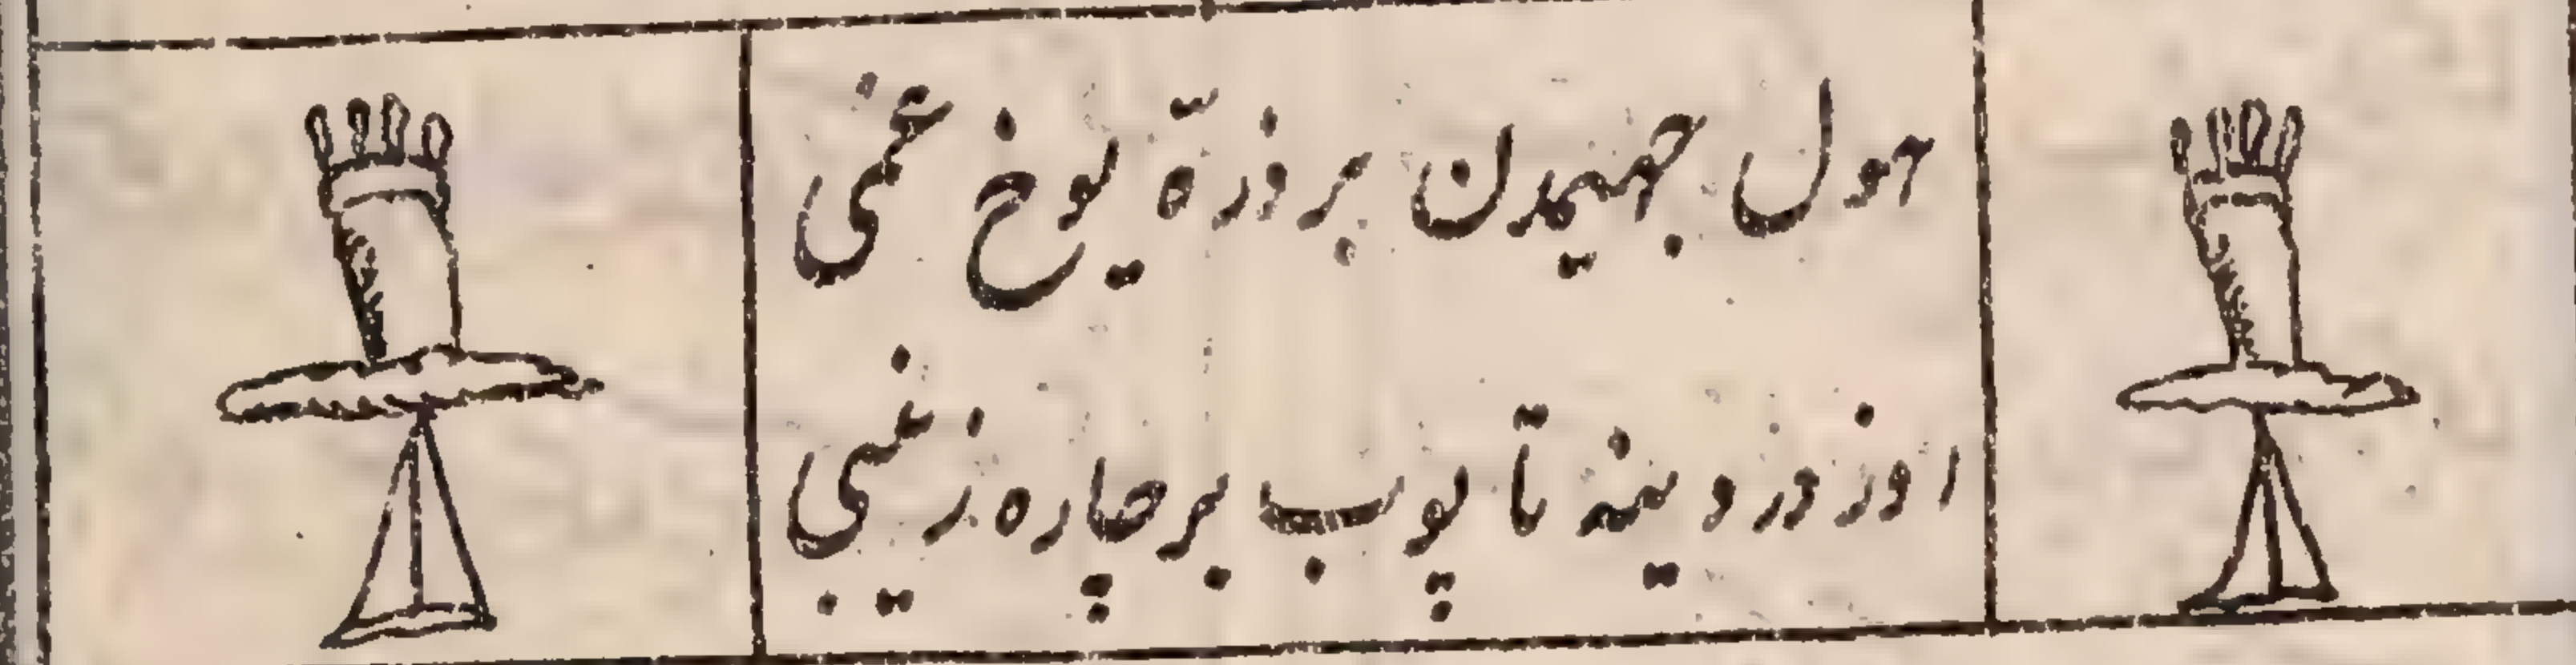 هول جهیمدن بر ذرّه یوخ غمی
اوز دردینه تاپوب بر چاره زینبی